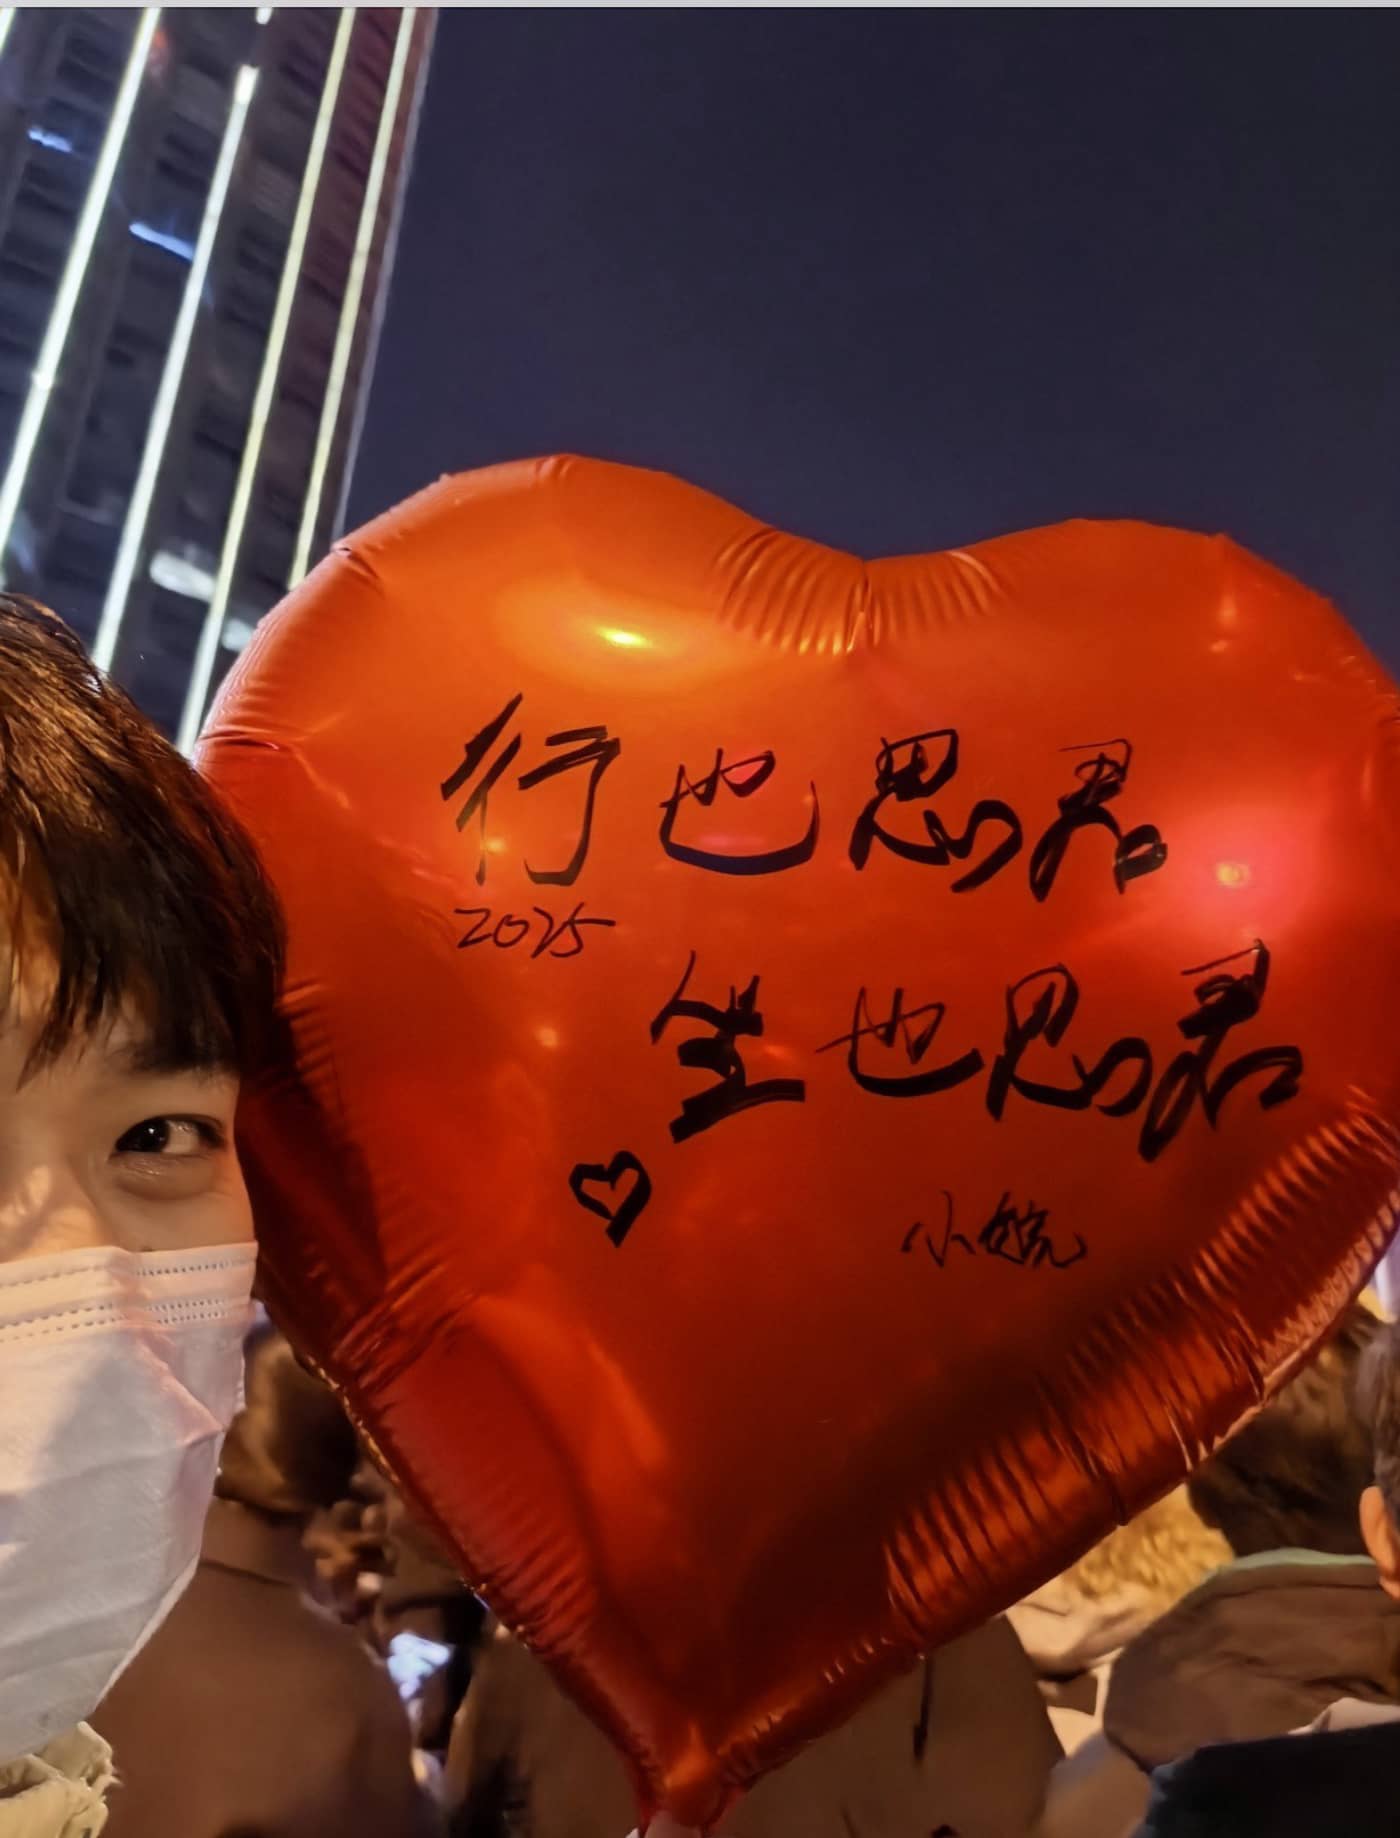 行也思君
2025
坐也思君
小航